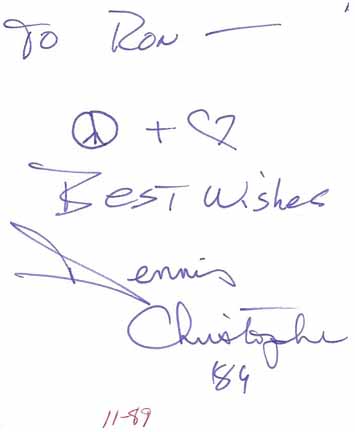 To Ron —
☮ + ♡
Best Wishes
Dennis
Christopher
'89
11-89